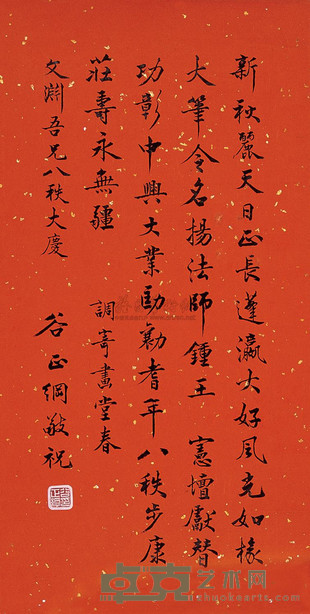 新秋麗天日正長蓬瀛大好風光如椽
大筆令名揚法師鍾王 憲壇獻替
功彰中興大業勛勷耆年八秩步康
莊壽永無疆 調寄畫堂春
文淵吾兄八秩大慶
谷正綱敬祝
卓克艺术网